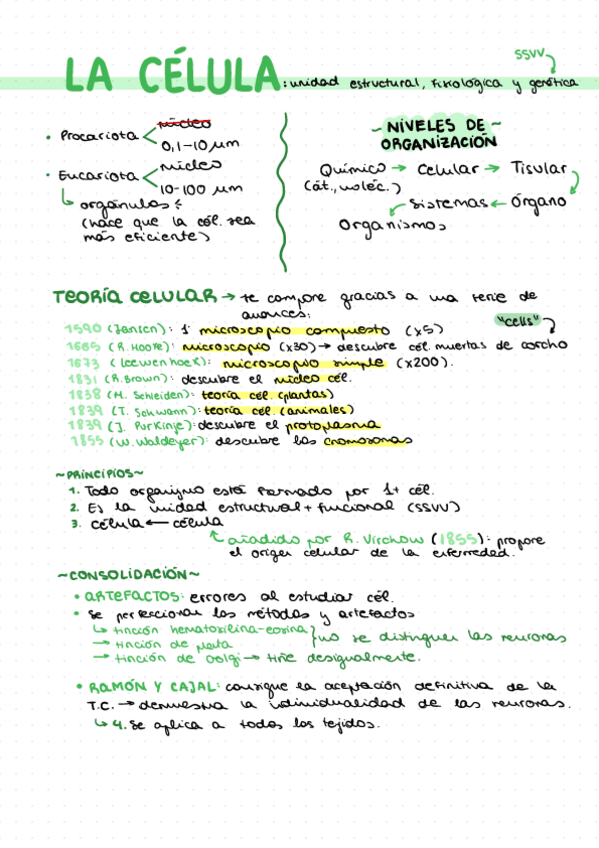 SSVV
LA CÉLULA: unidad estructural, fisiológica y genética
• Procariota < núcleo
0,1-10 µm
• Eucariota < núcleo
10-100 µm
↳ orgánulos
(hace que la cél. sea
más eficiente)
~ NIVELES DE ~
ORGANIZACIÓN
Químico → Celular → Tisular
(át., moléc.)
Sistemas ← Órgano
Organismos
TEORÍA CELULAR → te compone gracias a una serie de
avances:
"cells"
1590 (Jansen): 1º microscopio compuesto (x5)
1665 (R. Hooke): microscopio (x30) → descubre cél. muertas de corcho
1673 (Leewenhoek): microscopio simple (x200).
1831 (R. Brown): descubre el núcleo cél.
1838 (M. Schleiden): teoría cél. (plantas)
1839 (T. Schwann): teoría cél. (animales)
1839 (J. Purkinje): descubre el protoplasma
1855 (W. Waldeyer): descubre los cromosomas
~PRINCIPIOS~
1. Todo organismo está formado por 1+ cél.
2. Es la unidad estructural + funcional (SSVV)
3. célula ← célula
añadido por R. Virchow (1855): propone
el origen celular de la enfermedad.
~CONSOLIDACIÓN~
• ARTEFACTOS: errores al estudiar cél.
• Se perfeccionan los métodos y artefactos
↳ tinción hematoxilina-eosina
→ tinción de plata } no se distinguen las neuronas
→ tinción de Golgi → tiñe desigualmente.
• RAMÓN Y CAJAL: consigue la aceptación definitiva de la
T.C. → demuestra la individualidad de las neuronas.
↳ 4. Se aplica a todos los tejidos.